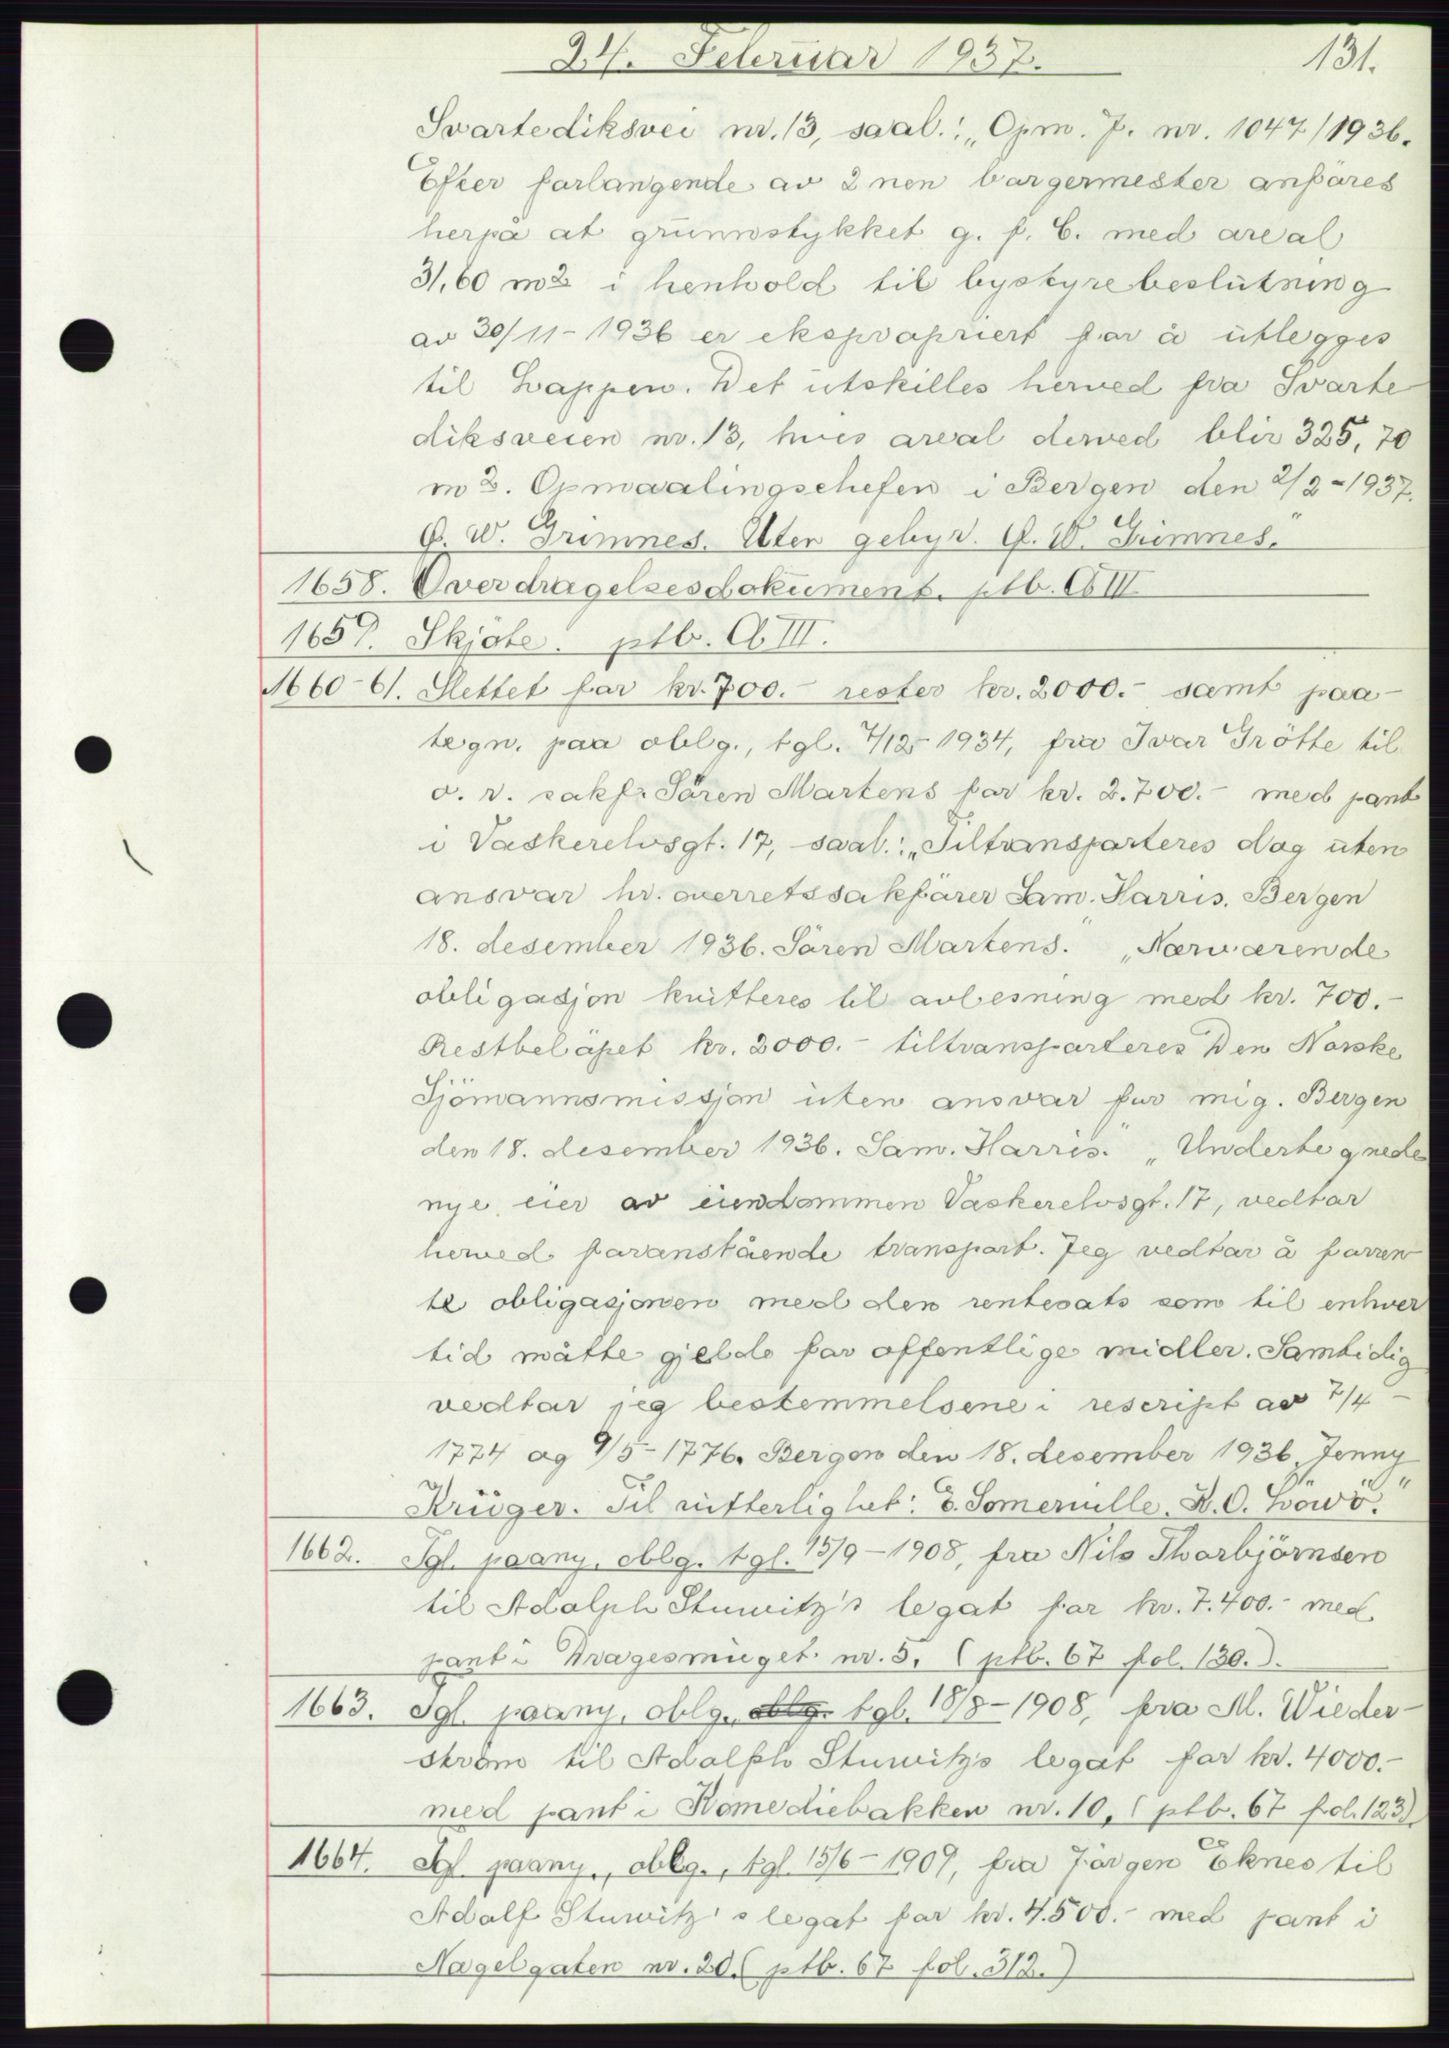 24. Februar 1937. 131.
Svartediksvei nr. 13, saal.: „Opm. J. nr. 1047/1936.
Efter forlangende av 2nen borgermester anföres
herpå at grunnstykket g. f. C. med areal
31,60 m2 i henhold til bystyrebeslutning
av 30/11-1936 er ekspropriert for å utlegges
til Lappen. Det utskilles herved fra Svarte
diksveien nr. 13, hvis areal derved blir 325,70
m2. Opmaalingschefen i Bergen den 2/2-1937.
G. W. Grimnes. Uten gebyr. G. W. Grimnes."
1658. Overdragelsesdokument. ptb. Cb III.
1659. Skjöte. ptb. Cb III.
1660-61. Slettet for kr. 700.- rester kr. 2000.- samt paa-
tegn. paa oblg., tgl. 7/12-1934, fra Ivar Grötte til
o. r. sakf. Sören Martens for kr. 2.700.- med pant
i Vaskerelvsgt. 17, saal.: „Tiltransporteres dog uten
ansvar hr. overretssakförer Sam. Harris. Bergen
18. desember 1936. Sören Martens." „Nærværende
obligasjon kvitteres til avlesning med kr. 700.-
Restbelöpet kr. 2000.- tiltransporteres Den Norske
Sjömannsmissjon uten ansvar for mig. Bergen
den 18. desember 1936. Sam. Harris." „Undertegnede
nye eier av eiendommen Vaskerelvsgt. 17, vedtar
herved foranstående transport. Jeg vedtar å forren
te obligasjonen med den rentesats som til enhver
tid måtte gjelde for offentlige midler. Samtidig
vedtar jeg bestemmelsene i rescript av 7/4-
1774 og 9/5-1776. Bergen den 18. desember 1936. Jenny
Krüger. Til vitterlighet: E. Somerville. K. O. Löwö."
1662. Tgl. paany, oblg. tgl. 15/9-1908, fra Nils Thorbjörnsen
til Adolph Stuwitz's legat for kr. 7.400.- med
pant i Dragesmuget nr. 5. (ptb. 67 fol. 130.).
1663. Tgl. paany, oblg., oblg. tgl. 18/8-1908, fra M. Wieder-
ström til Adolph Stuwitz's legat for kr. 4000.-
med pant i Komediebakken nr. 10, (ptb. 67 fol. 123).
1664. Tgl. paany., oblg., tgl. 15/6-1909, fra Jörgen Eknes til
Adolf Stuwitz's legat for kr. 4.500.- med pant i
Nagelgaten nr. 20. (ptb. 67 fol. 312.)